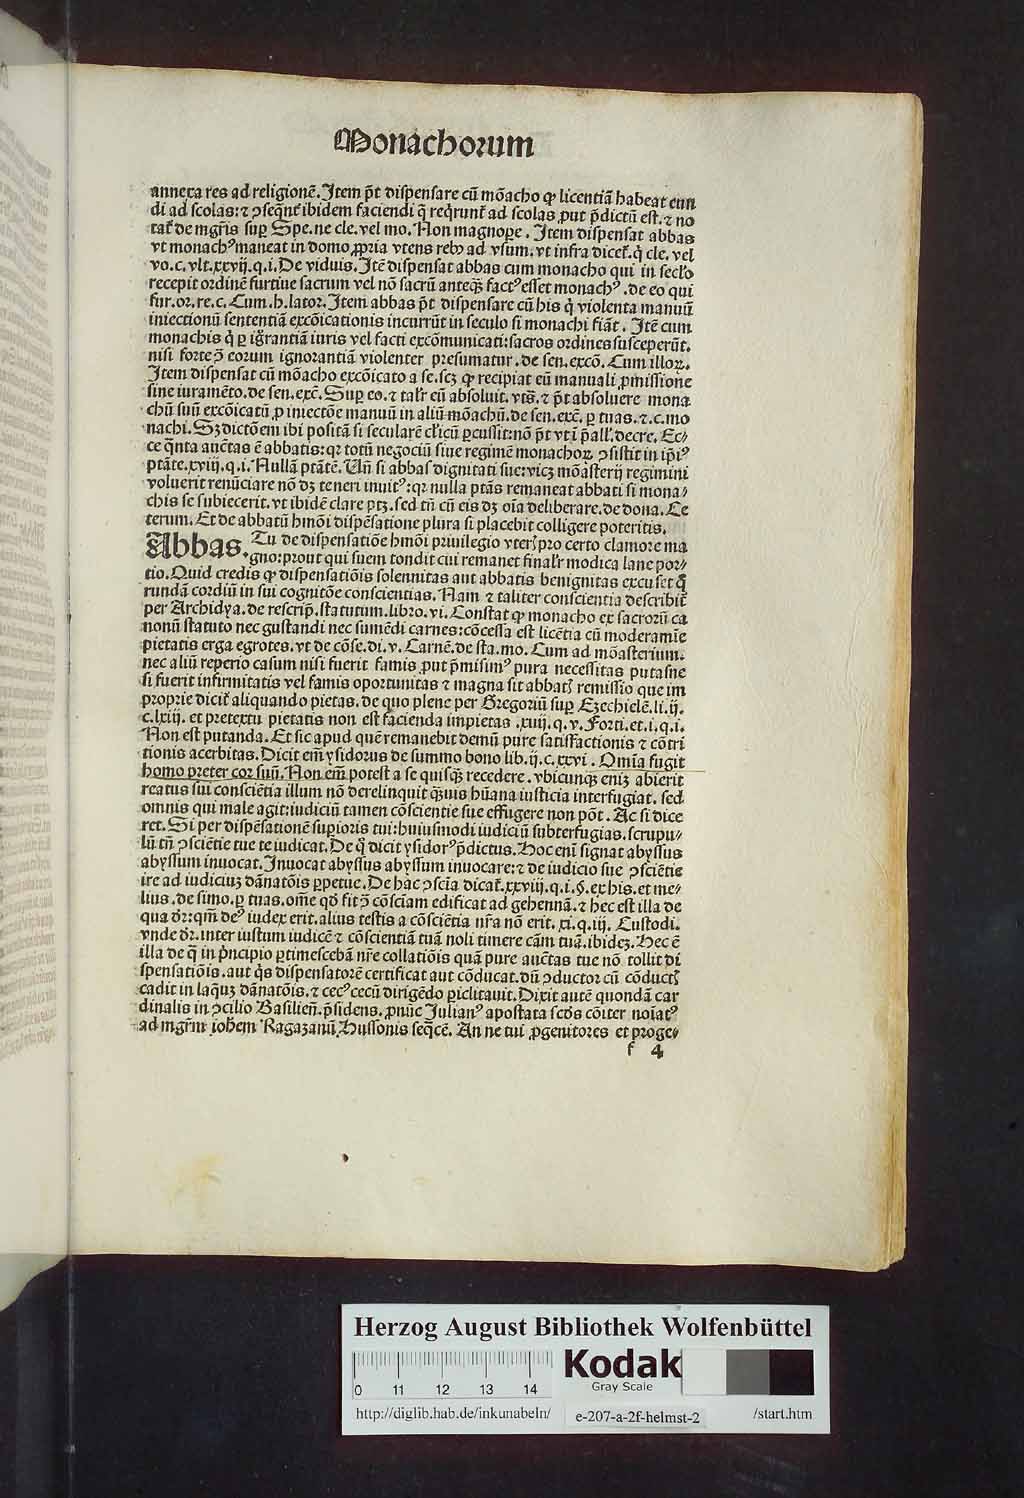 Monachorum
annexa res ad religionē. Item p̄t dispensare cū mōacho ꝙ licentiā habeat eun
di ad scolas: ⁊ ꝯseqn̄t ibidem faciendi q̄ reqrunt̄ ad scolas ꝓut p̄dictū est. ⁊ no
tat̄ de mgr̄is suꝑ Spe. ne cle. vel mo. Non magnoꝑe. Item dispensat abbas
vt monachꝰ maneat in domo ꝓpria vtens rebꝰ ad vsum. vt infra dicet̄. q̄ cle. vel
vo. c. vlt. xxvij. q. i. De viduis. Itē dispensat abbas cum monacho qui in secl'o
recepit ordinē furtiue sacrum vel nō sacrū anteqꝫ factꝰ esset monachꝰ. de eo qui
fur. or. re. c. Cum. h. lator. Item abbas p̄t dispensare cū his q̇ violenta manuū
iniectionū sententiā excōicationis incurrūt in seculo si monachi fiāt. Itē cum
monachis q̇ ꝑ igr̄antiā iuris vel facti excōmunicati: sacros ordines susceperūt.
nisi forte ꝯ̄ eorum ignorantiā violenter presumatur. de sen. excō. Cum illoꝝ.
Item dispensat cū mōacho excōicato a se. scꝫ ꝙ recipiat eū manuali ꝓmissione
sine iuramēto. de sen. exc̄. Suꝑ eo. ⁊ tal'r eū absoluit. vts̄. ⁊ p̄t absoluere mona
chū suū excōicatū ꝓ iniectōe manuū in aliū mōachū. de sen. exc̄. ꝑ tuas. ⁊. c. mo
nachi. Sꝫ dictōem ibi positā si seculare cl'icū ꝑcussit: nō p̄t vt i p̄all'. decre. Ec⸗
ce q̄nta auctas ē abbatis: qꝛ totū negociū siue regimē monachoꝝ ꝯsistit in ip̄iꝰ
ptāte. xviij. q. i. Nullā ptātē. Un̄ si abbas dignitati sue: vicꝫ mōasterij regimini
voluerit renūciare nō dꝫ teneri inuitꝰ: qꝛ nulla ptās remaneat abbati si mona⸗
chis se subiecerit. vt ibidē clare ptꝫ. sed tn̄ cū eis dꝫ oīa deliberare. de dona. Ce
terum. Et de abbatū hmōi dispēsatione plura si placebit colligere poteritis.
Abbas. Tu de dispensatiōe hmōi priuilegio vteris pro certo clamore ma
gno: prout qui suem tondit cui remanet final'r modica lane por⸗
tio. Quid credis ꝙ dispensatiōis solennitas aut abbatis benignitas excuset q̄
rundā cordiū in sui cognitōe conscientias. Nam ⁊ taliter conscientia describit̄
per Archidya. de rescrip̄. statutum. libro. vi. Constat ꝙ monacho ex sacrorū ca
nonū statuto nec gustandi nec sumēdi carnes: cōcessa est licētia cū moderamīe
pietatis erga egrotes. vt de cōse. di. v. Carnē. de sta. mo. Cum ad mōasterium.
nec aliū reperio casum nisi fuerit famis ꝓut p̄misimꝰ pura necessitas putasne
si fuerit infirmitatis vel famis oportunitas ⁊ magna sit abbatis remissio que im
proprie dicit̄ aliquando pietas. de quo plene per Gregoriū suꝑ Ezechielē. li. ij.
c. lxiij. et pretextu pietatis non est facienda impietas. xiiij. q. v. Forti. et. i. q. i.
Non est putanda. Et sic apud quē remanebit demū pure satisfactionis ⁊ cōtri
tionis acerbitas. Dicit em̄ ysidorus de summo bono lib. ij. c. xxvi. Omia fugit
homo preter cor suū. Non em̄ potest a se quisqꝫ recedere. vbicunqꝫ enim abierit
reatus sui consciētia illum nō derelinquit qꝫuis hūana iusticia interfugiat. sed
omnis qui male agit: iudiciū tamen cōscientie sue effugere non pōt. Ac si dice
ret. Si per dispēsationē suꝑioris tui: huiusmodi iudiciū subterfugias. scrupu⸗
lū tn̄ ꝯsciētie tue te iudicat. De q̇ dicit ysidorꝰ p̄dictus. Hoc eni signat abyssus
abyssum inuocat. Inuocat abyssus abyssum inuocare: ⁊ de iudicio sue ꝯsciētie
ire ad iudiciuꝫ dānatōis ꝑpetue. De hac ꝯscīa dicat̄. xxviij. q. i. §. ex his. et me⸗
lius. de simo. ꝑ tuas. ome qd̄ fit ꝯ̄ cōsciam edificat ad gehennā. ⁊ hec est illa de
qua dr̄: qm̄ deꝰ iudex erit. alius testis a cōsciētia nr̄a nō erit. xi. q. iij. Custodi.
vnde dr̄. inter iustum iudicē ⁊ cōscientiā tuā noli timere cām tuā. ibideꝫ. Hec ē
illa de q̄ in p̄ncipio ꝑtimescebā nr̄e collatiōis quā pure auctas tue nō tollit di
spensatiōis. aut q̇s dispensatorē certificat aut cōducat. dū ꝯductor cū cōductis
cadit in laqꝫ dānatōis. ⁊ cecꝰ cecū dirigēdo ꝑiclitauit. Dixit autē quondā car
dinalis in ꝯcilio Basilien̄. p̄sidens. ꝓnūc Julianꝰ apostata scd̄s cōiter noiatꝰ
ad mgr̄m iohem Ragazanū Hussonis seq̄cē. An ne tui ꝓgenitores et proge⸗
f 4
Herzog August Bibliothek Wolfenbüttel
0 11 12 13 14
Kodak
Gray Scale
http://diglib.hab.de/inkunabeln/ e-207-a-2f-helmst-2 /start.htm